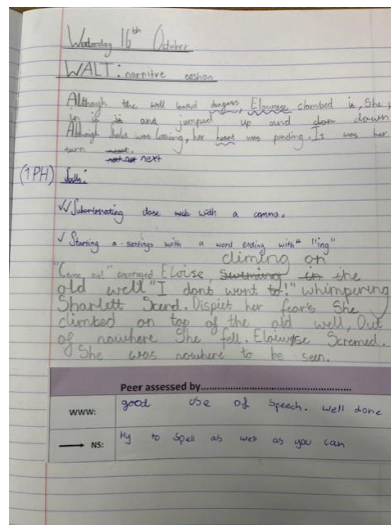 Wednesday 16th October
WALT: narritve
Although the well looked dangers, Elowese climbed in, She
up and down
Although was her was ponding. It was her
turn next
(1PH) Walt:
Subordinating close with a comma.
Starting a sentings with a word ending with "ing"
climing on
"Come out" encouraged Eloise the
old well "I dont want to!" whimpering
Sharlett Scard. Dispict her fear's She
climbed on top of the old well, Out
of nowhere She fell. Elowyse Scremed.
She was nowhere to be seen.
Peer assessed by
WWW: good use of speech. well done
NS: try to spell as well as you can